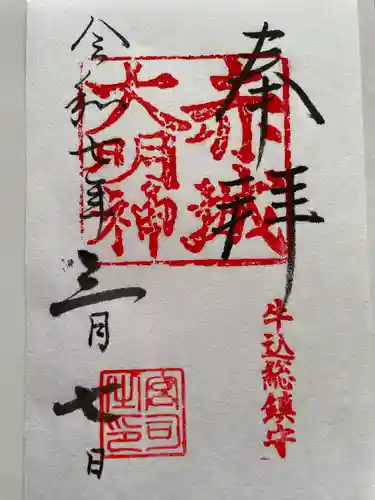 奉拝
赤城
大明神
牛込総鎮守
令和七年
三月
七日
宮司
之印